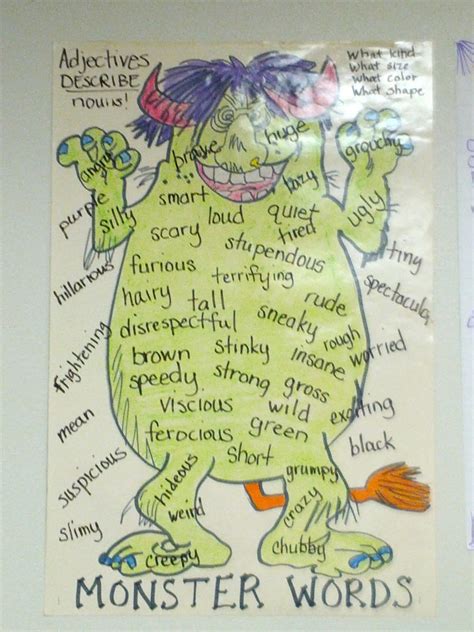 Adjectives
DESCRIBE
nouns!
What kind
What size
What color
What shape
angry
brave
huge
grouchy
purple
silly
smart
lazy
ugly
scary
loud
quiet
tired
tiny
hilarious
furious
stupendous
terrifying
spectacular
hairy
tall
rude
frightening
disrespectful
sneaky
rough
worried
brown
stinky
insane
speedy
strong
gross
mean
viscious
wild
exciting
ferocious
green
black
suspicious
hideous
short
grumpy
slimy
weird
crazy
creepy
chubby
MONSTER WORDS